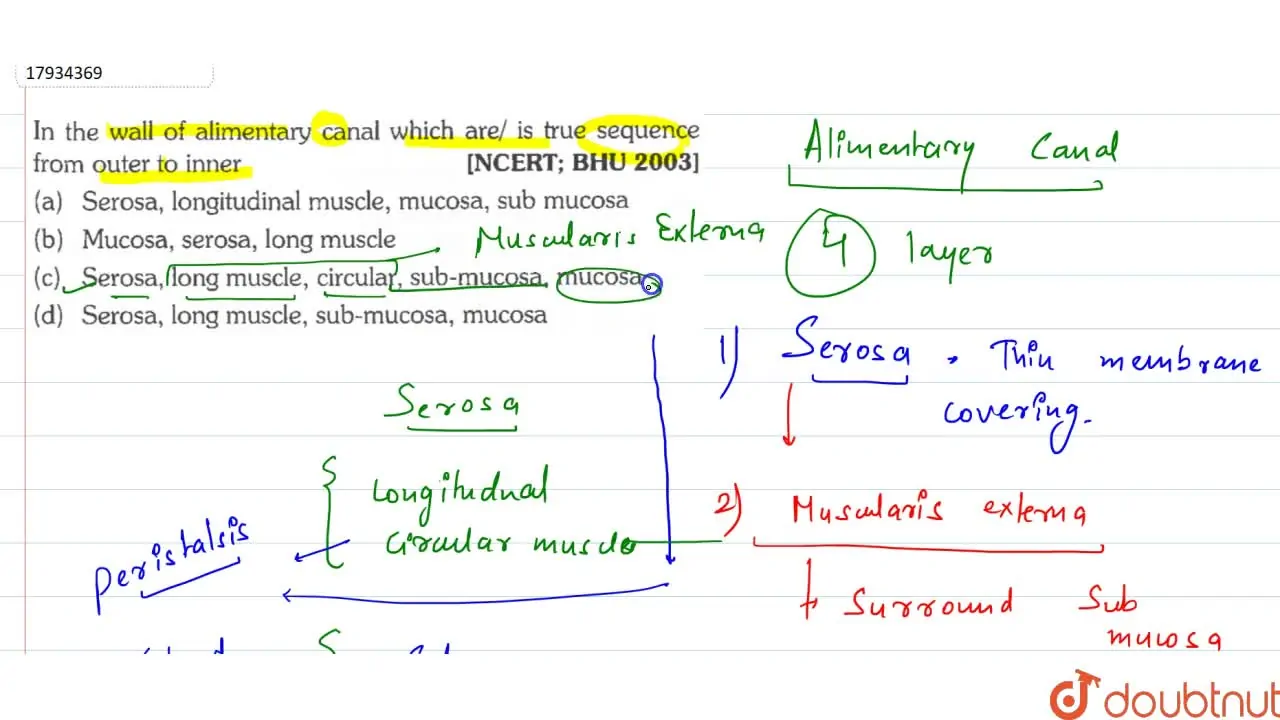 17934369
In the wall of alimentary canal which are/ is true sequence
from outer to inner [NCERT; BHU 2003]
(a) Serosa, longitudinal muscle, mucosa, sub mucosa
(b) Mucosa, serosa, long muscle
(c) Serosa, long muscle, circular, sub-mucosa, mucosa
(d) Serosa, long muscle, sub-mucosa, mucosa
Muscularis Externa
Serosa
Longitudnal
Circular muscle
Peristalsis
Alimentary Canal
4 layer
1) Serosa . Thin membrane
covering.
2) Muscularis externa
Surround Sub
mucosa
doubtnut